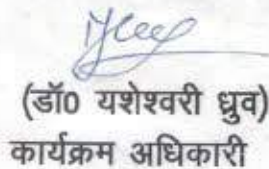 (डॉ0 यशेश्वरी ध्रुव)
कार्यक्रम अधिकारी